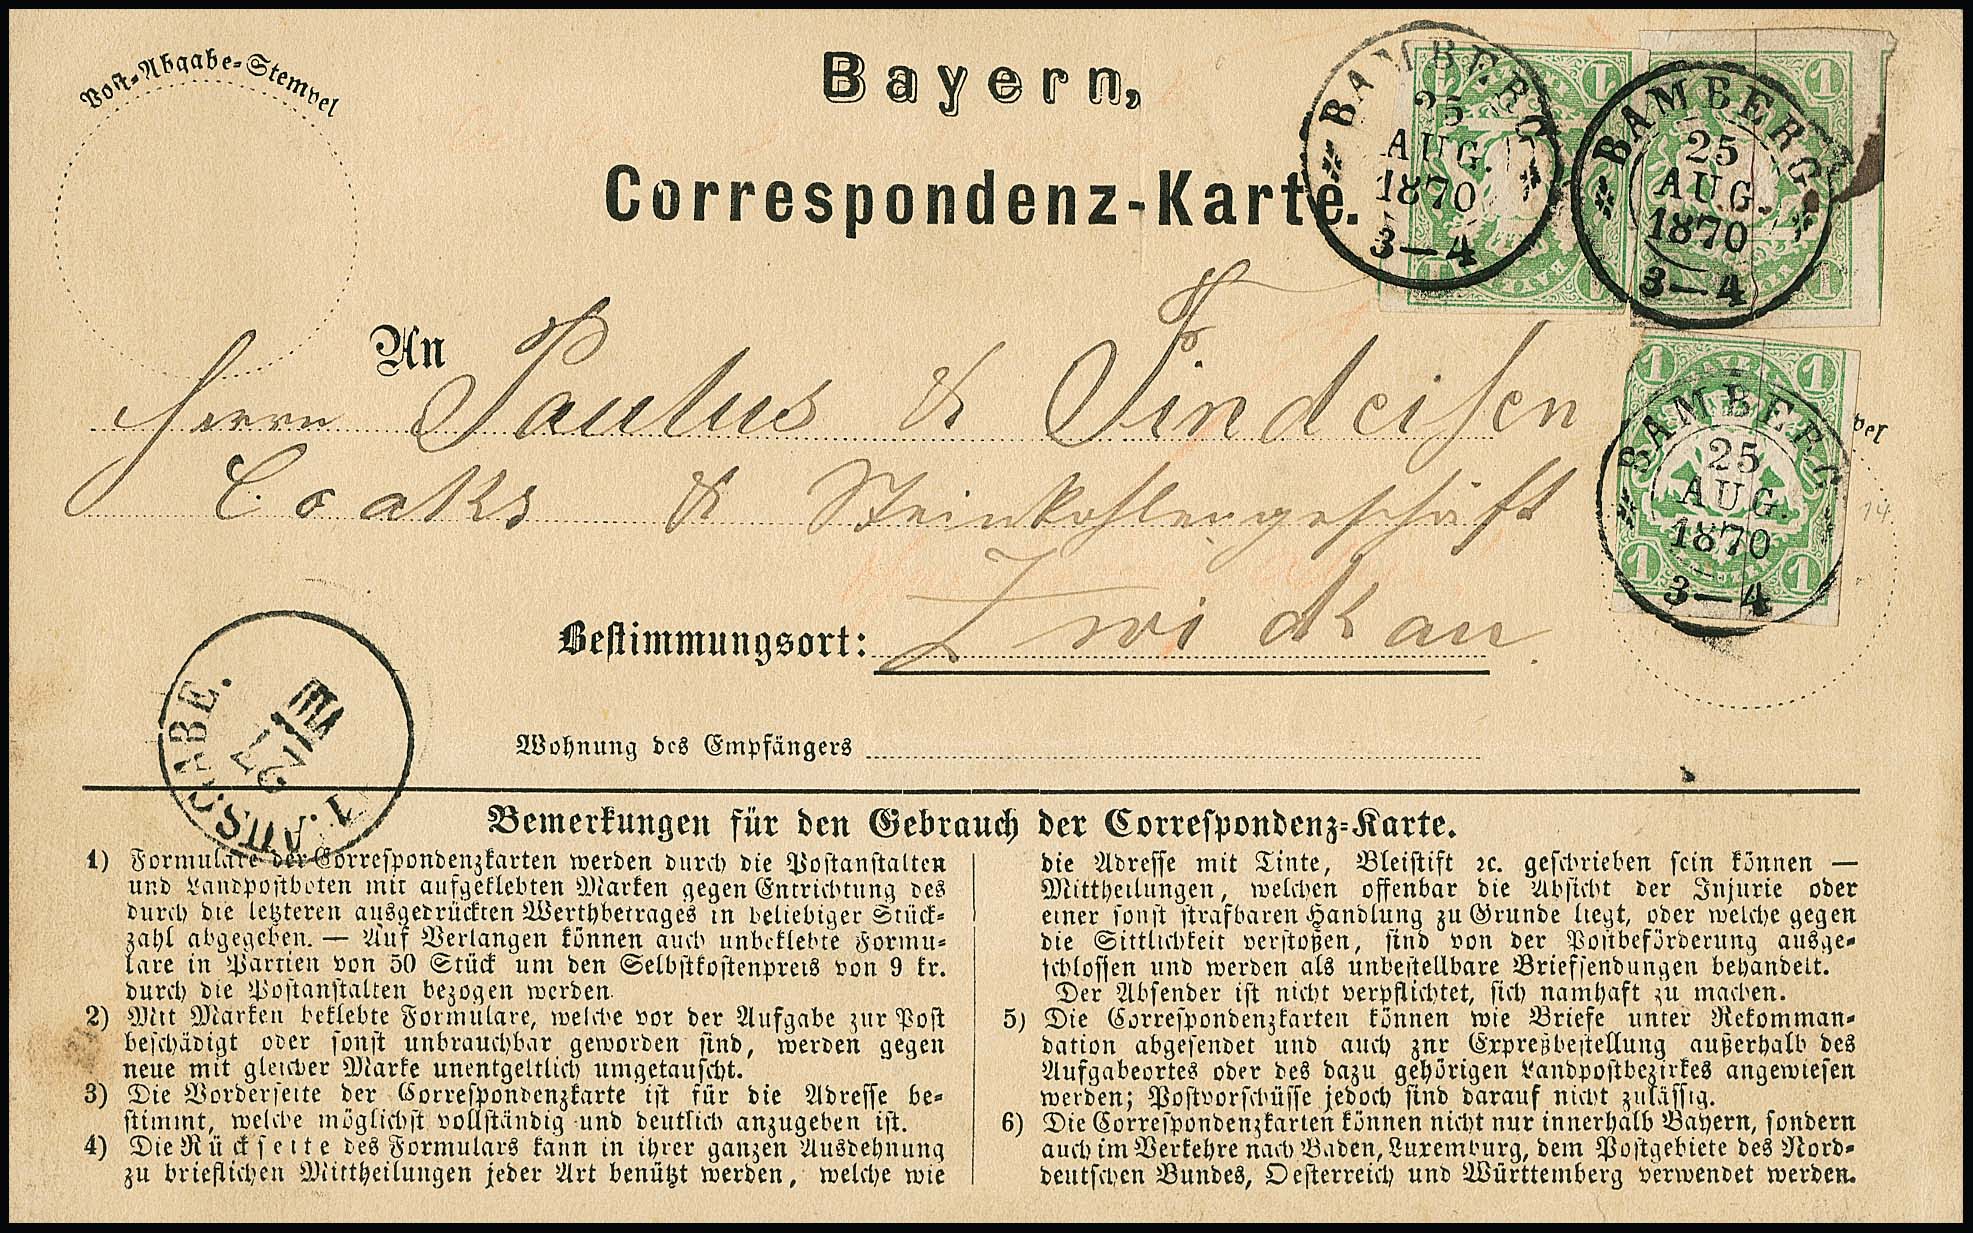 Post-Abgabe-Stempel
Bayern,
Correspondenz-Karte.
BAMBERG
25
AUG.
1870
3—4
BAMBERG
25
AUG.
1870
3—4
1 1
1
BAMBERG
25
AUG.
1870
3—4
1 1
1 1
pel
14
An
Herrn Paulus & Findeisen
Coaks & Steinkohlengeschäft
Bestimmungsort: Zwickau.
Wohnung des Empfängers
1. AUSGABE.
Bemerkungen für den Gebrauch der Correspondenz-Karte.
1) Formulare der Correspondenzkarten werden durch die Postanstalten
und Landpostboten mit aufgeklebten Marken gegen Entrichtung des
durch die letzteren ausgedrückten Werthbetrages in beliebiger Stück-
zahl abgegeben. — Auf Verlangen können auch unbeklebte Formu-
lare in Partien von 50 Stück um den Selbstkostenpreis von 9 kr.
durch die Postanstalten bezogen werden.
2) Mit Marken beklebte Formulare, welche vor der Aufgabe zur Post
beschädigt oder sonst unbrauchbar geworden sind, werden gegen
neue mit gleicher Marke unentgeltlich umgetauscht.
3) Die Vorderseite der Correspondenzkarte ist für die Adresse be-
stimmt, welche möglichst vollständig und deutlich anzugeben ist.
4) Die Rückseite des Formulars kann in ihrer ganzen Ausdehnung
zu brieflichen Mittheilungen jeder Art benützt werden, welche wie
die Adresse mit Tinte, Bleistift ꝛc. geschrieben sein können —
Mittheilungen, welchen offenbar die Absicht der Injurie oder
einer sonst strafbaren Handlung zu Grunde liegt, oder welche gegen
die Sittlichkeit verstoßen, sind von der Postbeförderung ausge-
schlossen und werden als unbestellbare Briefsendungen behandelt.
Der Absender ist nicht verpflichtet, sich namhaft zu machen.
5) Die Correspondenzkarten können wie Briefe unter Rekomman-
dation abgesendet und auch znr Expreßbestellung außerhalb des
Aufgabeortes oder des dazu gehörigen Landpostbezirkes angewiesen
werden; Postvorschüsse jedoch sind darauf nicht zulässig.
6) Die Correspondenzkarten können nicht nur innerhalb Bayern, sondern
auch im Verkehre nach Baden, Luxemburg, dem Postgebiete des Nord-
deutschen Bundes, Oesterreich und Württemberg verwendet werden.